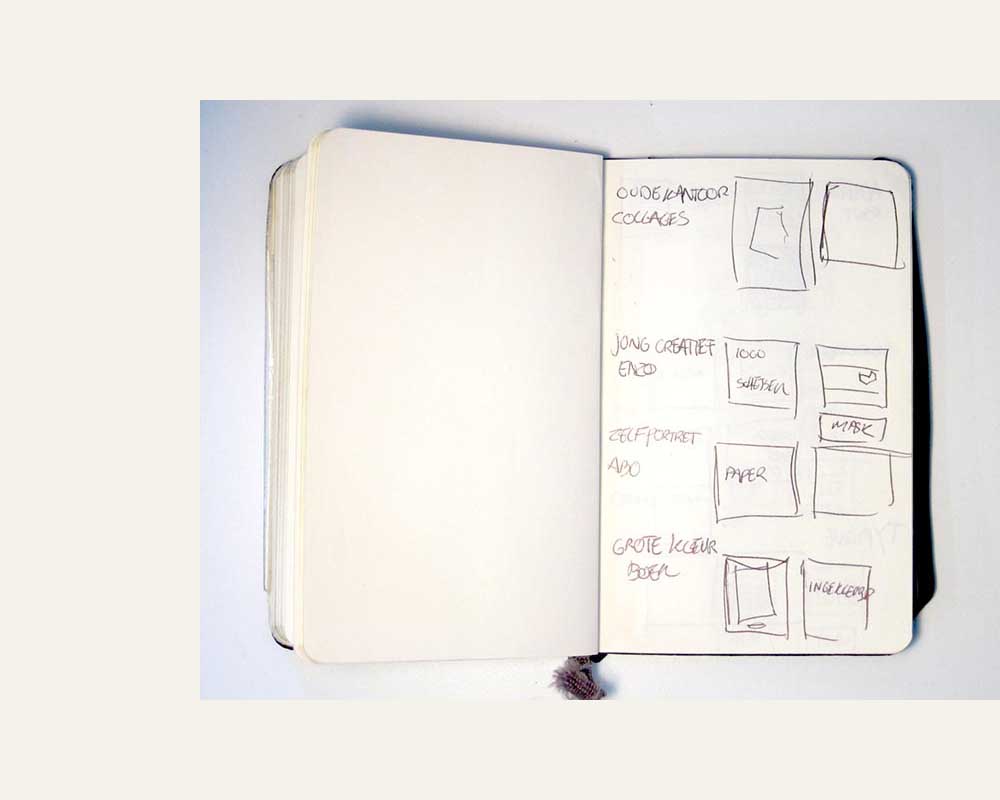 OUDE KANTOOR
COLLAGES
JONG CREATIEF
ENZO
LOGO
SCHETSEN
MASK
ZELFPORTRET
ABO
PAPER
GROTE KLEUR
BOER
INGEKLEURD